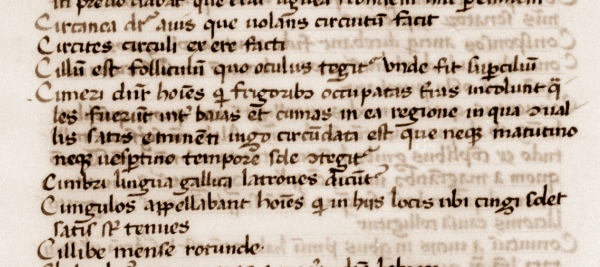 Circanea dr̄ auis que volans circuitū facit
Circites circuli ex ere facti
Ciliū est folliculū quo oculus tegit᷑ Vnde fit suꝑciliū
Cimeri diūt hoīes qͥ frigoribꝫ occupatas t͛ras incolunt qͣ
les fuerūt int͛ baias et cimas in ea regione in qua ↄual
lis satis eminēti iugo circūdata est que neqꝫ matutino
neqꝫ vespertino tempore sole ↄtegit᷑
Cimbri lingua gallica latrones dicūt᷑
Cingulos appellabant hoīes qͥ in hijs locis ubi cingi solet
satis st̄ tenues
Cillibe mense rotunde